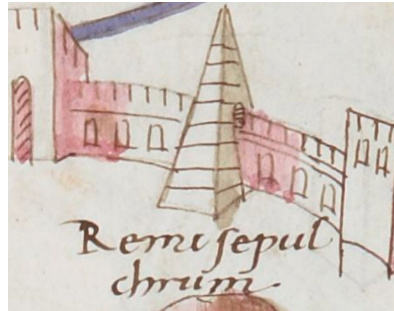 Remi sepul
chrum.